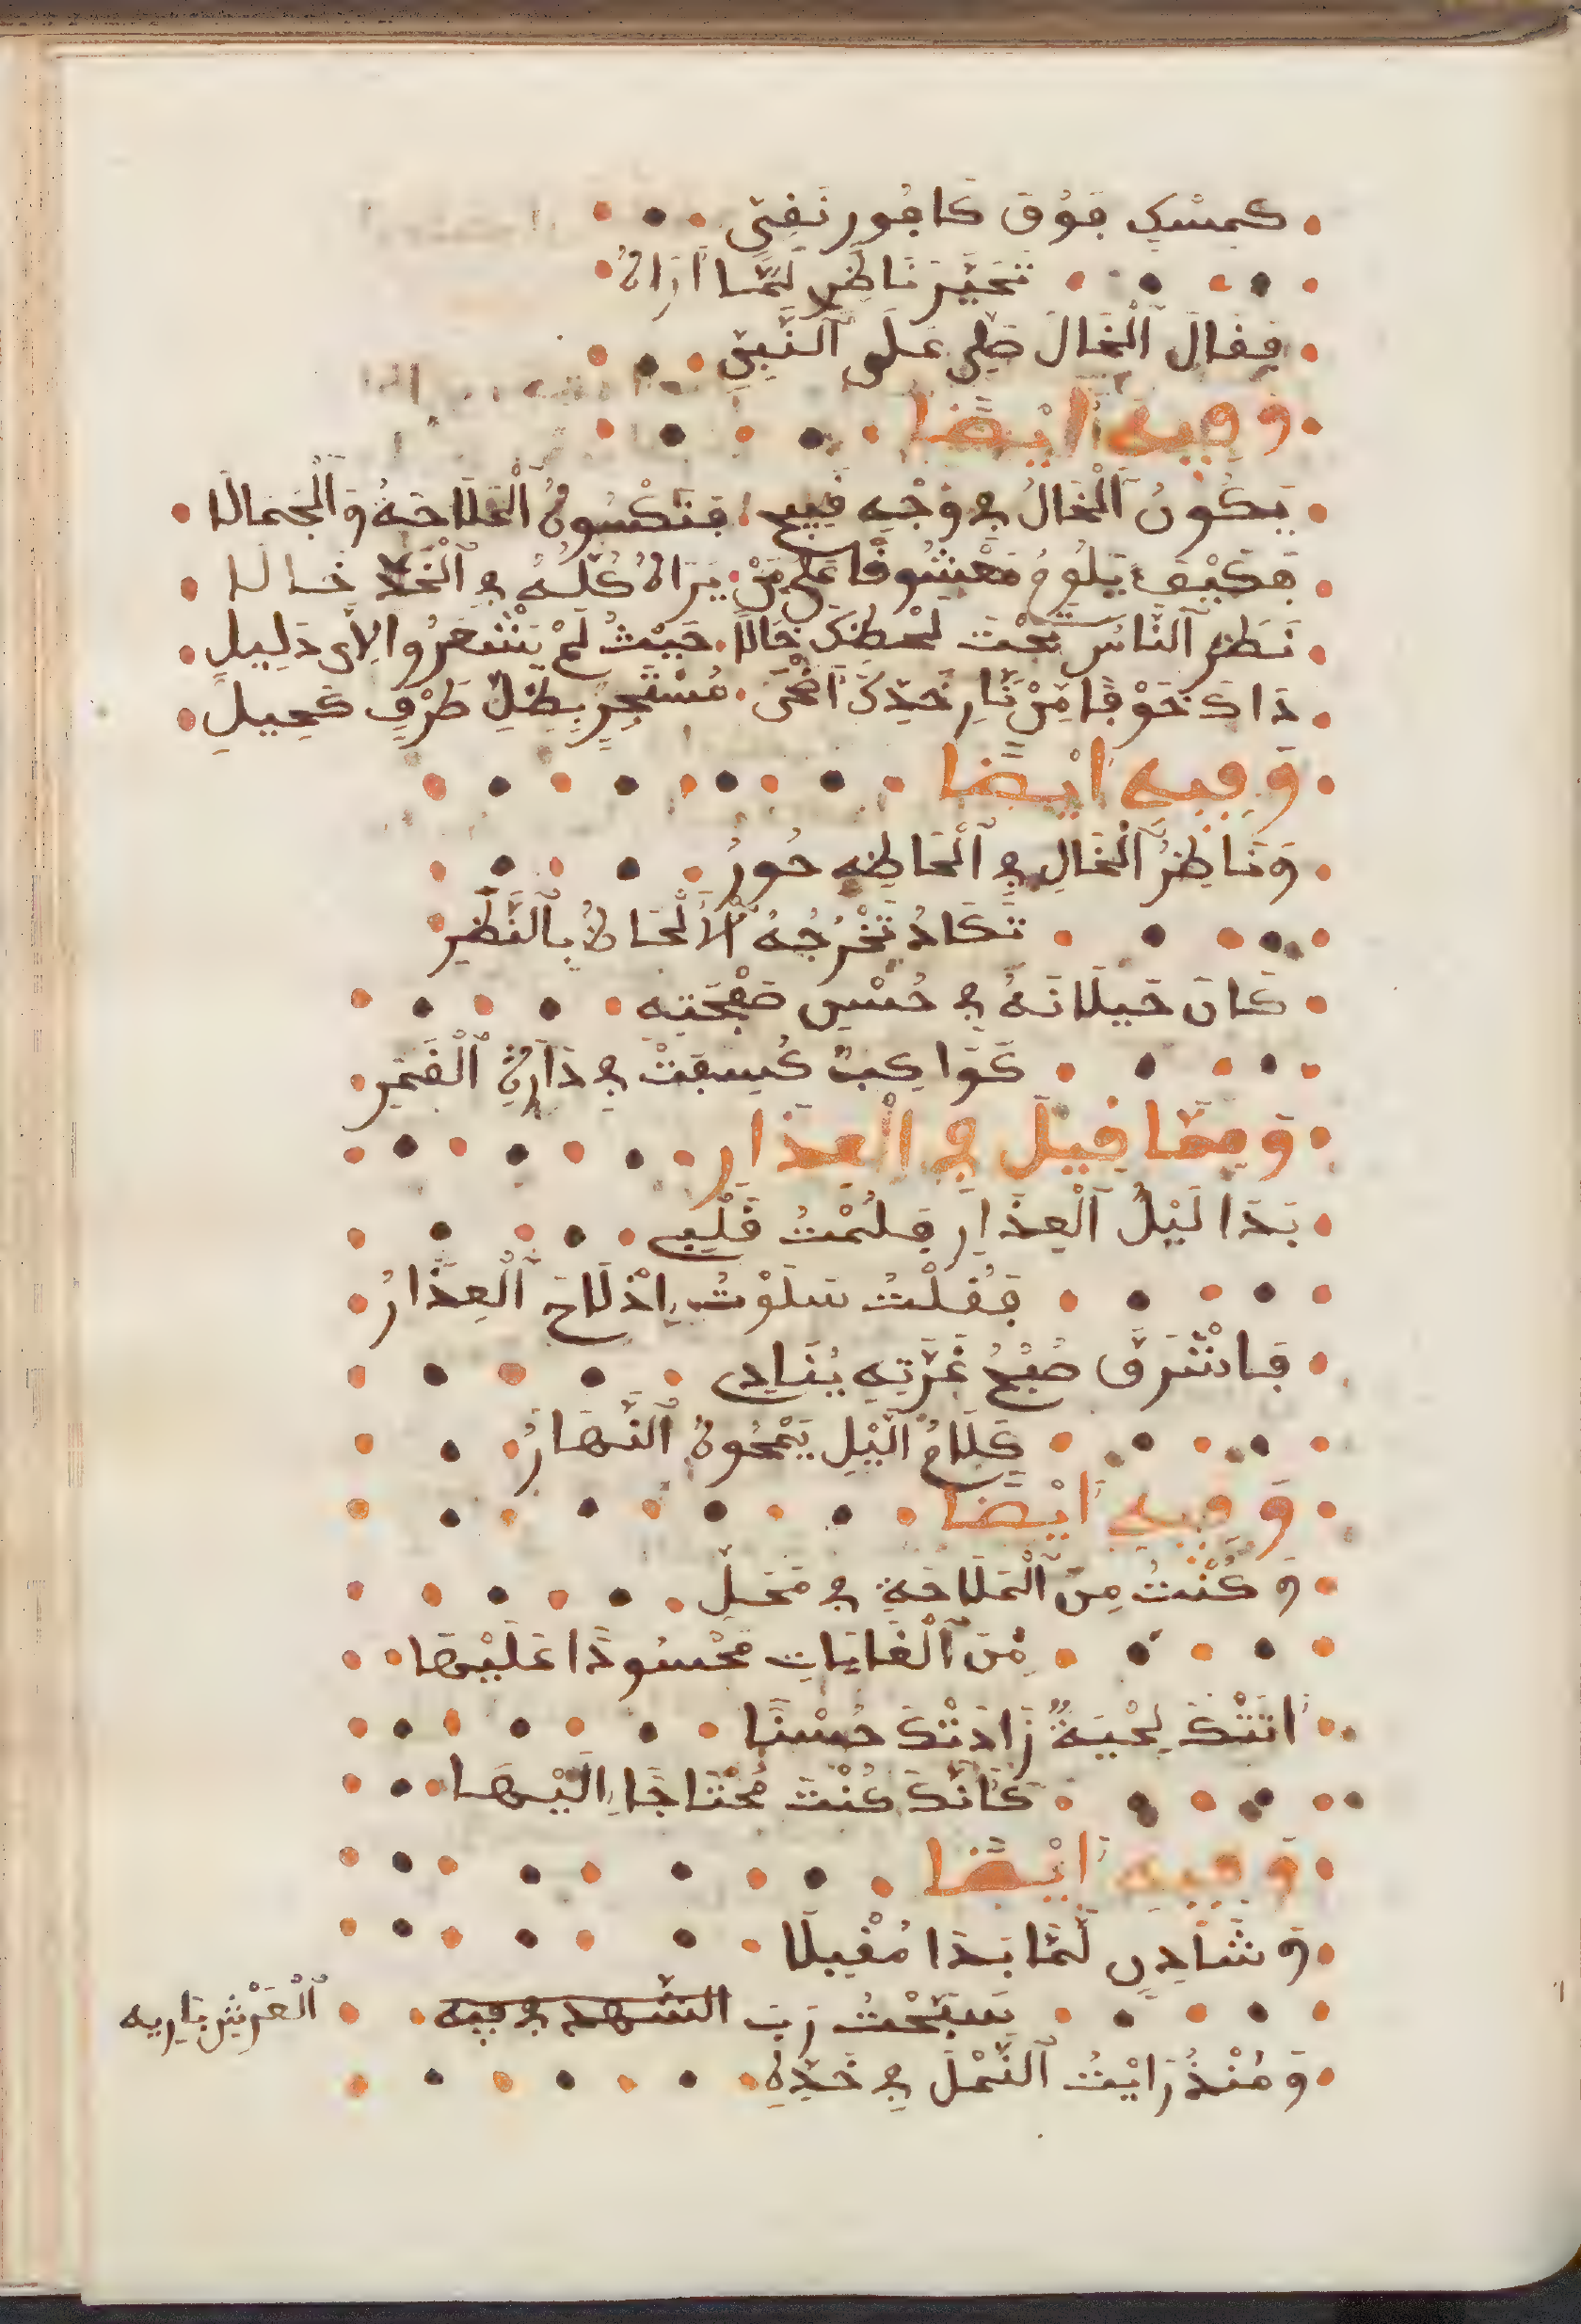 كَمِسْكٍ فَوْقَ كَافُورٍ نَفِيٍّ
تَحَيَّرَ نَاظِرِي لَمَّا أَرَاهُ
فَقَالَ ٱلْخَالُ صَلِّي عَلَى ٱلنَّبِيِّ
وَفِيهِ أَيْضًا
يَكُونُ ٱلْخَالُ فِي وَجْهٍ قَبِيحٍ فَتَكْسُوهُ ٱلْمَلَاحَةُ وَٱلْجَمَالَا
فَكَيْفَ يَلُومُ مَعْشُوقًا عَلَى مَنْ يَرَاهُ كُلُّهُ فِي ٱلْخَدِّ خَالَا
نَظَرَ ٱلنَّاسُ تَحْتَ لَحْظِكَ خَالًا حَيْثُ لَمْ يَشْعُرُوا لِأَيِّ دَلِيلِ
ذَاكَ خَوْفًا مِنْ نَارِ خَدِّكَ أَضْحَى مُسْتَجِيرٍ بِظِلِّ طَرْفٍ كَحِيلِ
وَفِيهِ أَيْضًا
وَنَاظِرُ ٱلْخَالِ فِي ٱلْحَاظِهِ حُورُ
تَكَادُ تَخْرُجُهُ ٱلْأَلْحَاظُ بِٱلنَّظَرِ
كَانَ خَيْلَانَهُ فِي حُسْنِ صَفْحَتِهِ
كَوَاكِبٌ كُسِفَتْ فِي دَارَةِ ٱلْقَمَرِ
وَمِمَّا قِيلَ فِي الْعِذَارِ
بَدَا لَيْلُ ٱلْعِذَارِ فَلُمْتُ قَلْبِي
فَقُلْتُ سَلَوْتُ إِذْ لَاحَ ٱلْعِذَارُ
فَاشْرَقَ صُبْحُ غُرَّتِهِ يُنَادِي
كَلَامُ ٱلَّيْلِ يَمْحُوهُ ٱلنَّهَارُ
وَفِيهِ أَيْضًا
وَكُنْتُ مِنَ ٱلْمَلَاحَةِ فِي مَحَلٍّ
مِنَ ٱلْغَايَاتِ مَحْسُودًا عَلَيْهَا
أَتَتْكَ لِحْيَةٌ زَادَتْكَ حُسْنًا
كَأَنَّكَ كُنْتَ مُحْتَاجًا إِلَيْهَا
وَفِيهِ أَيْضًا
وَشَادِنٍ لَمَّا بَدَا مُقْبِلًا
سَبَّحْتُ رَبَّ الشَّهْدِ فِي فِيهِ ٱلْعَرْشِ بَارِيهِ
وَمُنْذُ رَايْتُ ٱلنَّمْلَ فِي خَدِّهِ